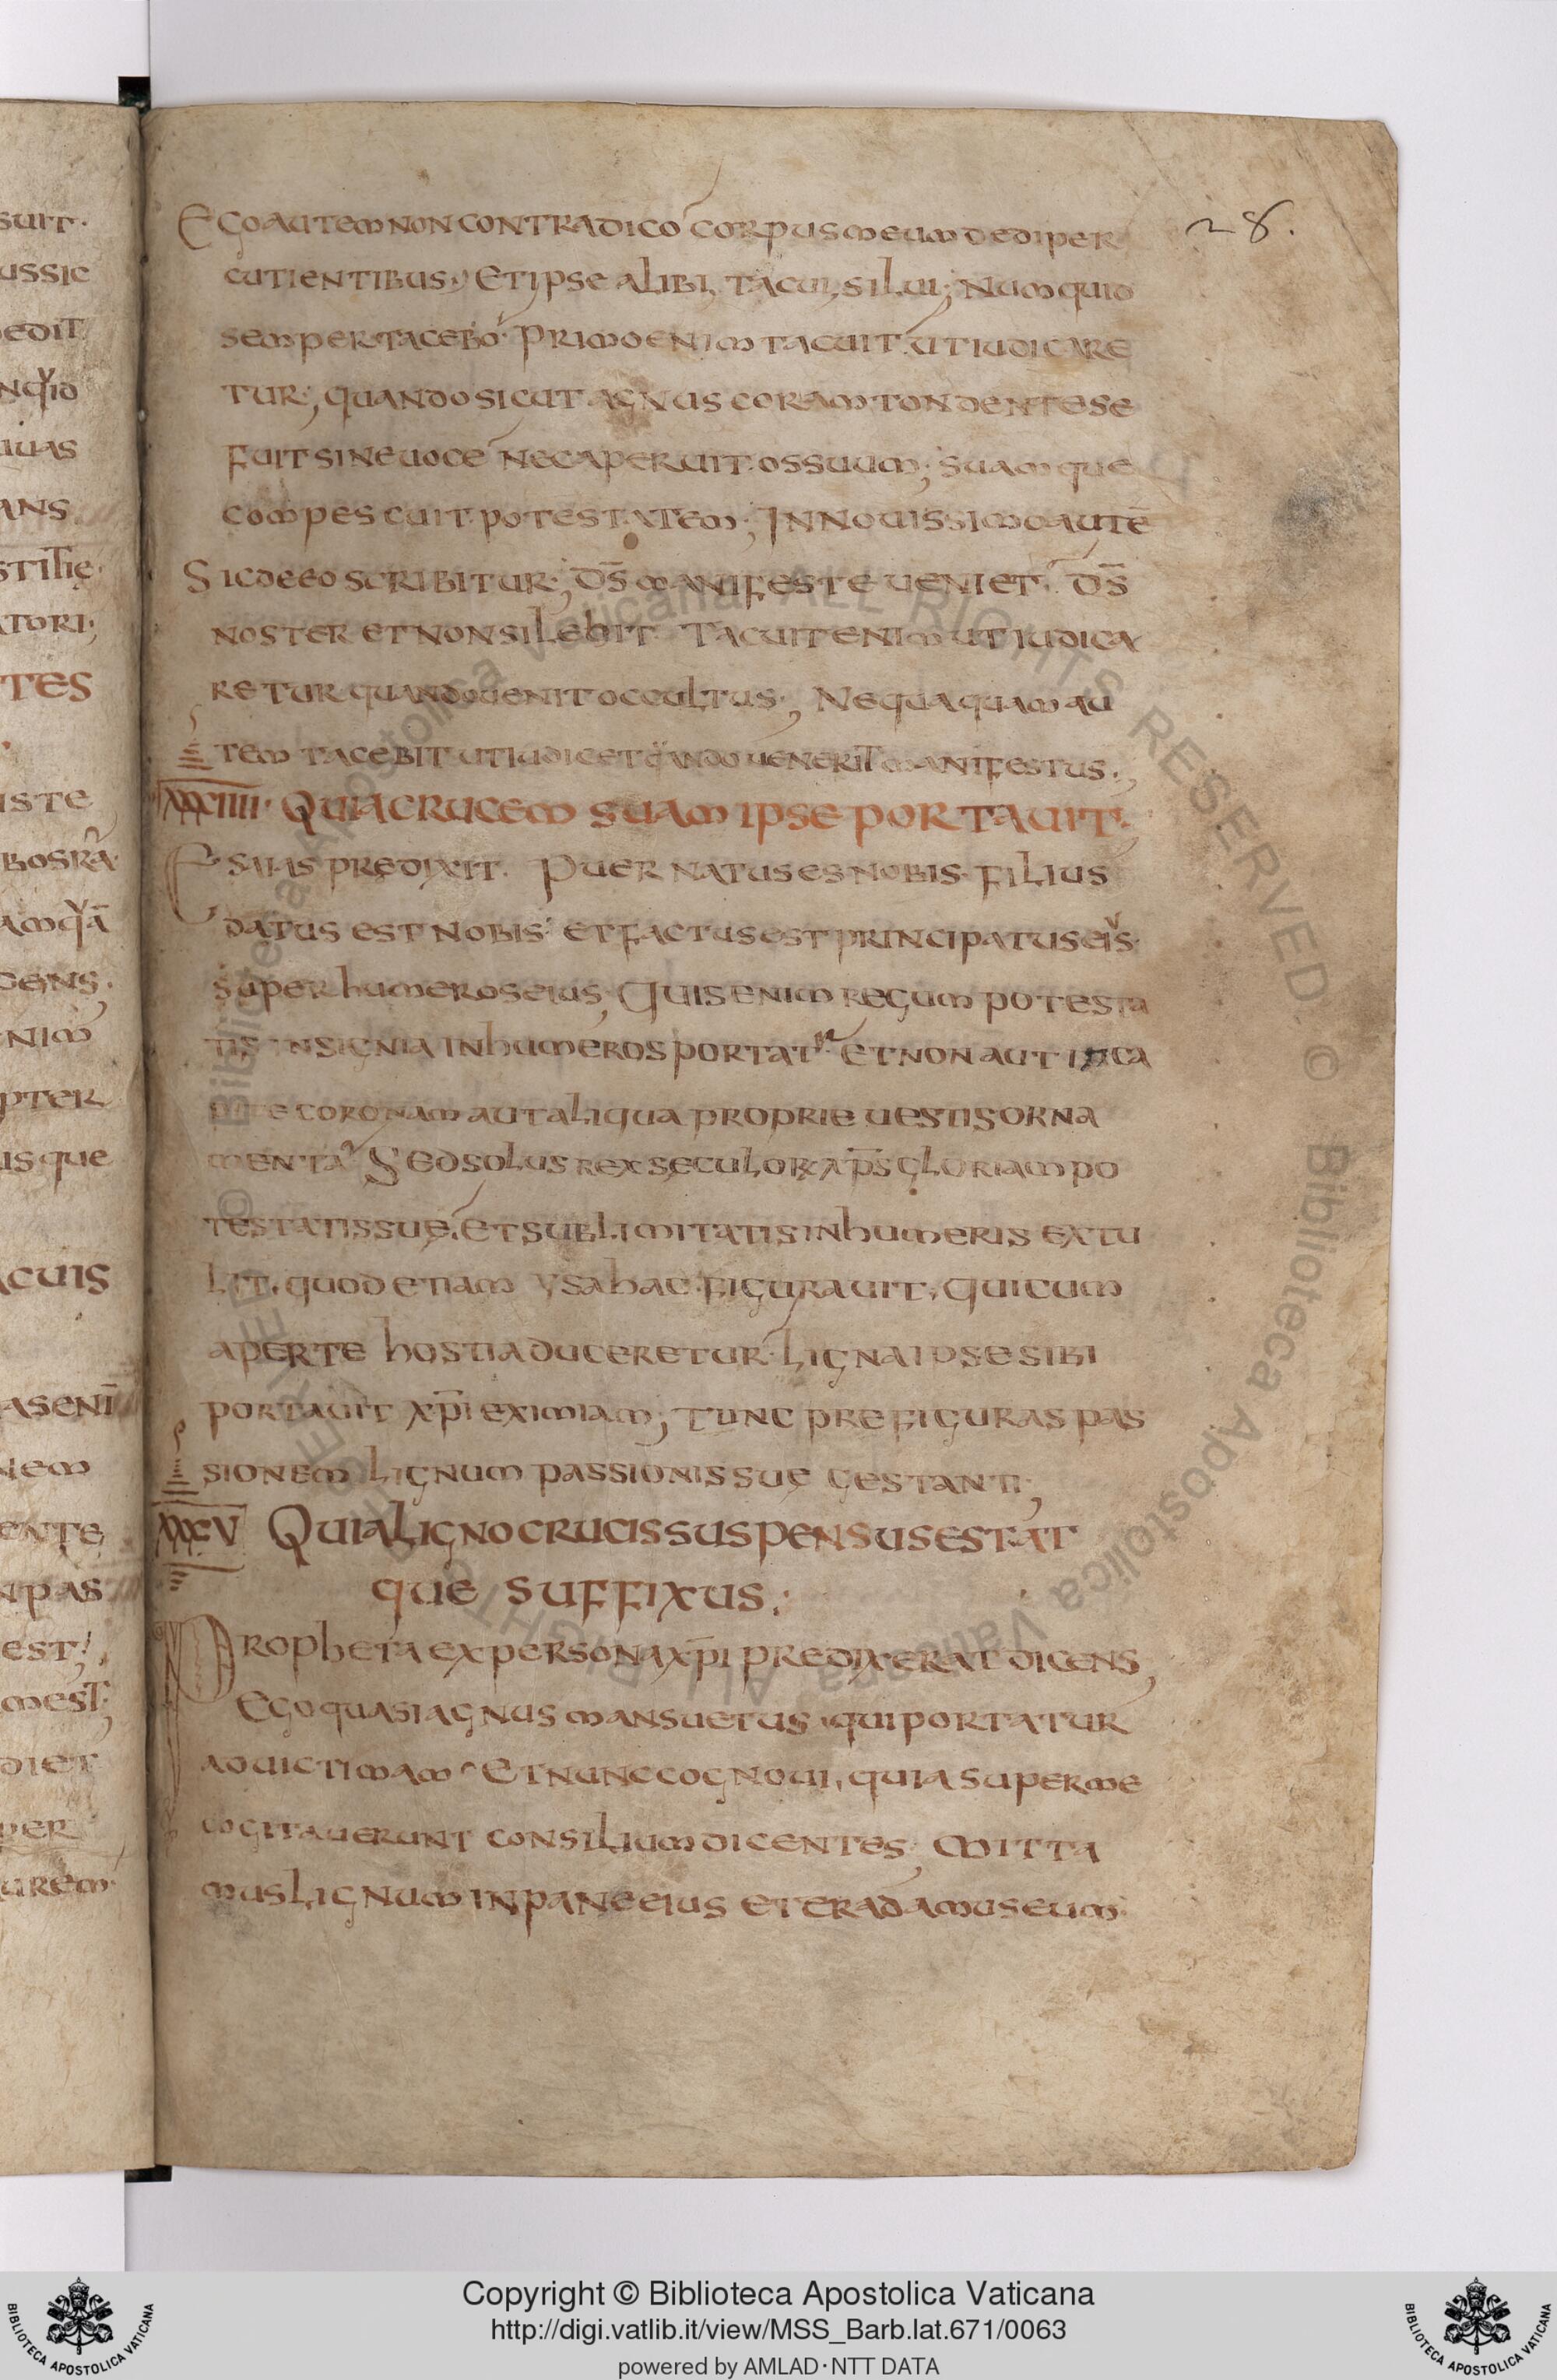 suit·
ussic
edit
nqid
uuas
ans
stitie·
atori;
tes
iste
bosra·
amqa
gens;
nim
pter
us que
acuis
aseni
nem
ente
npas
est;
mest;
diet
per
urem·
28.
Ego autem non contradico corpus meum dedi per
cutientibus; Et ipse alibi, tacui, silui; Numquid
semper tacebo· Primo enim tacuit ut iudicare
tur; quando sicut agnus coram tondente se
fuit sine uoce nec aperuit os suum; suamque
compescuit potestatem; In nouissimo autē
Sic de eo scribitur; d̄s manifeste ueniet· d̄s
noster et non silebit Tacuit enim ut iudica
retur quando uenit occultus; Nequaquam au
tem tacebit ut iudicet qando uenerit manifestus;
XXXIIII· Quia crucem suam ipse portauit;
Esaias predixit· Puer natus es nobis· filius
datus est nobis· et factus est principatus eis·
super humeros eius; Quis enim regum potesta
tis insignia in humeros portat· et non aut in ca
pite coronam aut aliqua proprie uestis orna
menta Sed solus rex seculorum xp̄s gloriam po
testatis sue, et sublimitatis in humeris extu
lit, quod etiam ysahac figurauit, qui cum
a perte hostia duceretur· ligna ipse sibi
portauit xp̄i eximiam; tunc prefiguras pas
sionem lignum passionis sue gestanti;
XXXV Quia ligno crucis suspensus est at
que suffixus;
Propheta ex persona xp̄i predixerat dicens,
Ego quasi agnus mansuetus, qui portatur
ad uictimam Et nunc cognoui, quia super me
cogitauerunt consilium dicentes; Mitta
mus lignum in pane eius et eradamus eum·
Copyright © Biblioteca Apostolica Vaticana
http://digi.vatlib.it/view/MSS_Barb.lat.671/0063
powered by AMLAD·NTT DATA
BIBLIOTECA APOSTOLICA VATICANA
BIBLIOTECA APOSTOLICA VATICANA